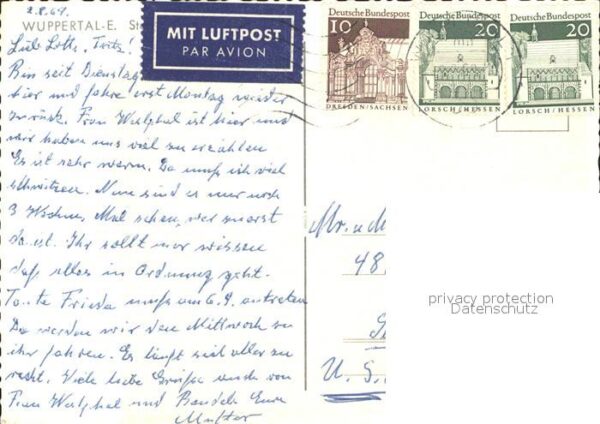 2.8.69.
WUPPERTAL-E. St
MIT LUFTPOST
PAR AVION
Deutsche Bundespost
10
DRESDEN/SACHSEN
Deutsche Bundespost
20
LORSCH/HESSEN
Deutsche Bundespost
20
LORSCH/HESSEN
Lieb Lotte, Fritz!
Bin seit Dienstag
hier und fahre erst Montag wieder
zurück. Frau Walphal ist hier und
wir haben uns viel zu erzählen
Es ist sehr warm. Da muß ich viel
schwitzen. Nun sind es nur noch
3 Wochen. Mal sehen, wer zuerst
da ist. Ihr sollt nur wissen
daß alles in Ordnung geht.
Tante Frieda muß am 6.9. antreten
Da werden wir den Mittwoch zu
ihr fahren. Es läuft sich alles zu
recht. Viele liebe Grüße auch von
Frau Walphal und Eure
Mutter
Mr. u M
48,
U. S.
privacy protection
Datenschutz